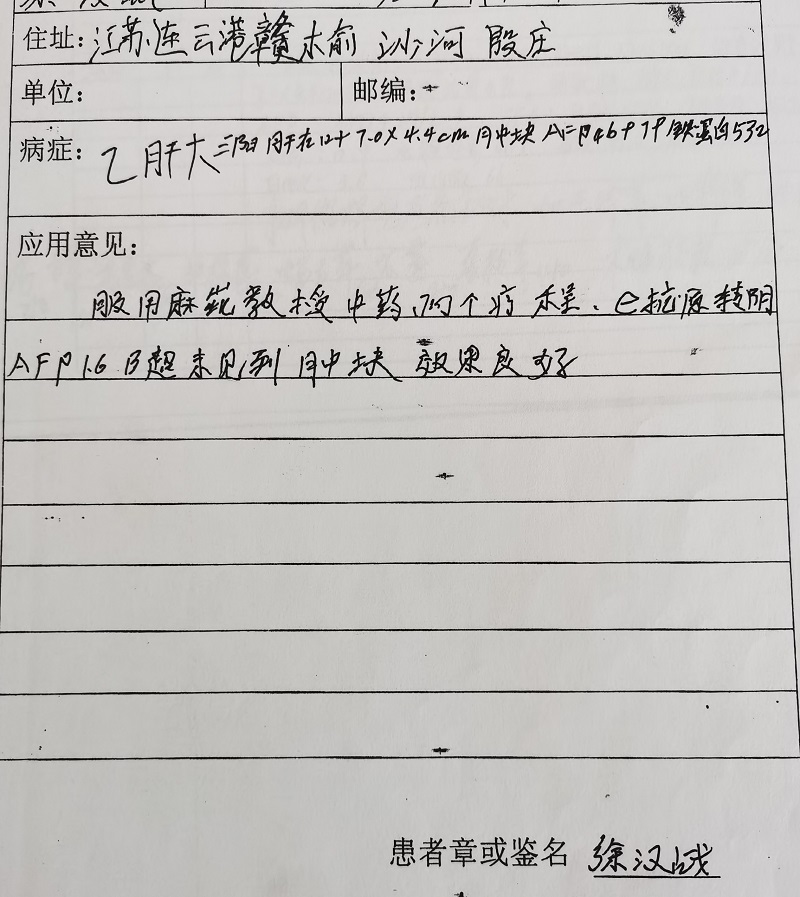 住址:江苏连云港赣木俞 沙河 殷庄
单位: 邮编:
病症: 乙肝大三阳 肝右 7.0×4.4cm 肿块 AFP 46 铁蛋白532
应用意见:
服用麻 教授中药,两个疗程、e抗原转阴
AFP 1.6 B超未见到肿块 效果良好
患者章或鉴名 徐汉成